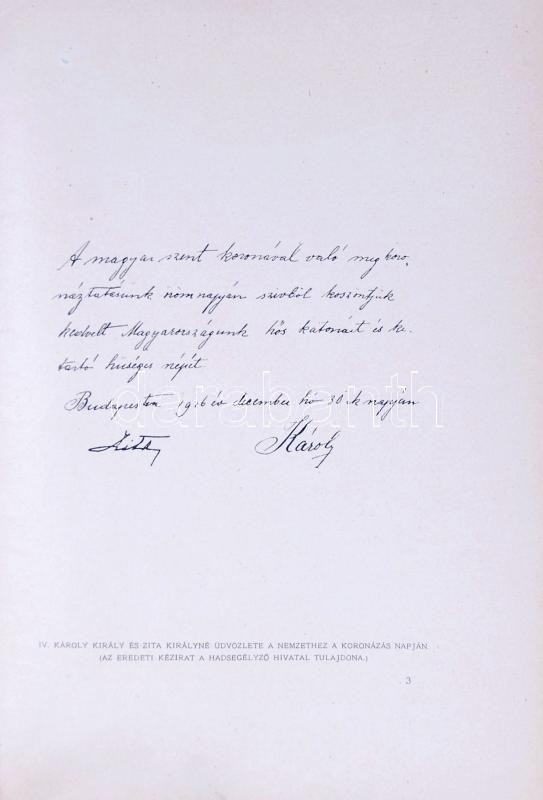 A magyar szent koronával való megkoro-
náztatásunk örömnapján szivből köszöntjük
kedvelt Magyarországunk hős katonáit és ki-
tartó hűséges népét.
Budapesten 1916 év december hó 30-ik napján
Zita Károly
darabanth
IV. KÁROLY KIRÁLY ÉS ZITA KIRÁLYNÉ ÜDVÖZLETE A NEMZETHEZ A KORONÁZÁS NAPJÁN.
(AZ EREDETI KÉZIRAT A HADSEGÉLYZŐ HIVATAL TULAJDONA.)
3